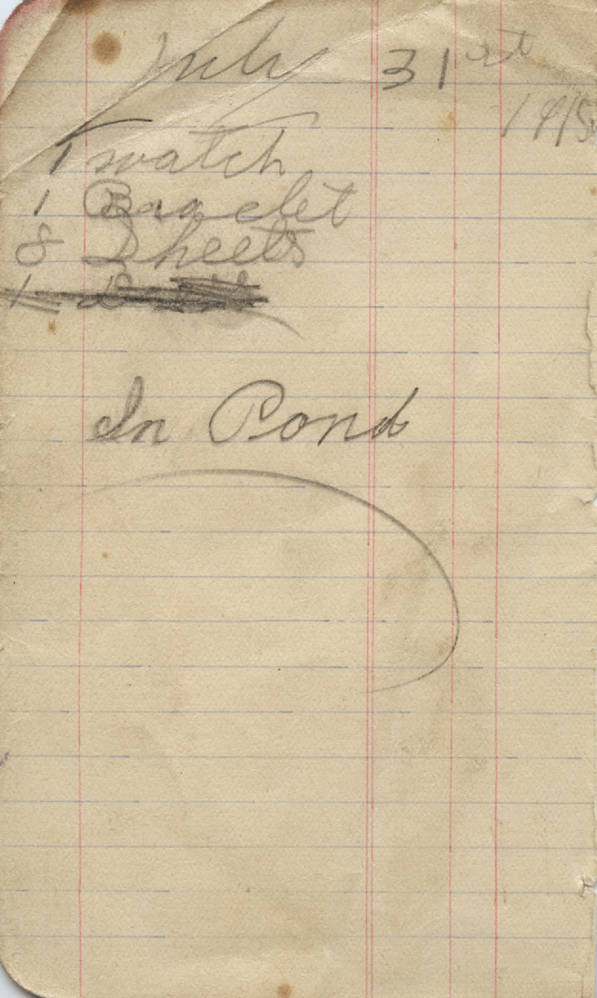 July 31st
1918
1 watch
1 Bracelet
8 Sheets
In Pond